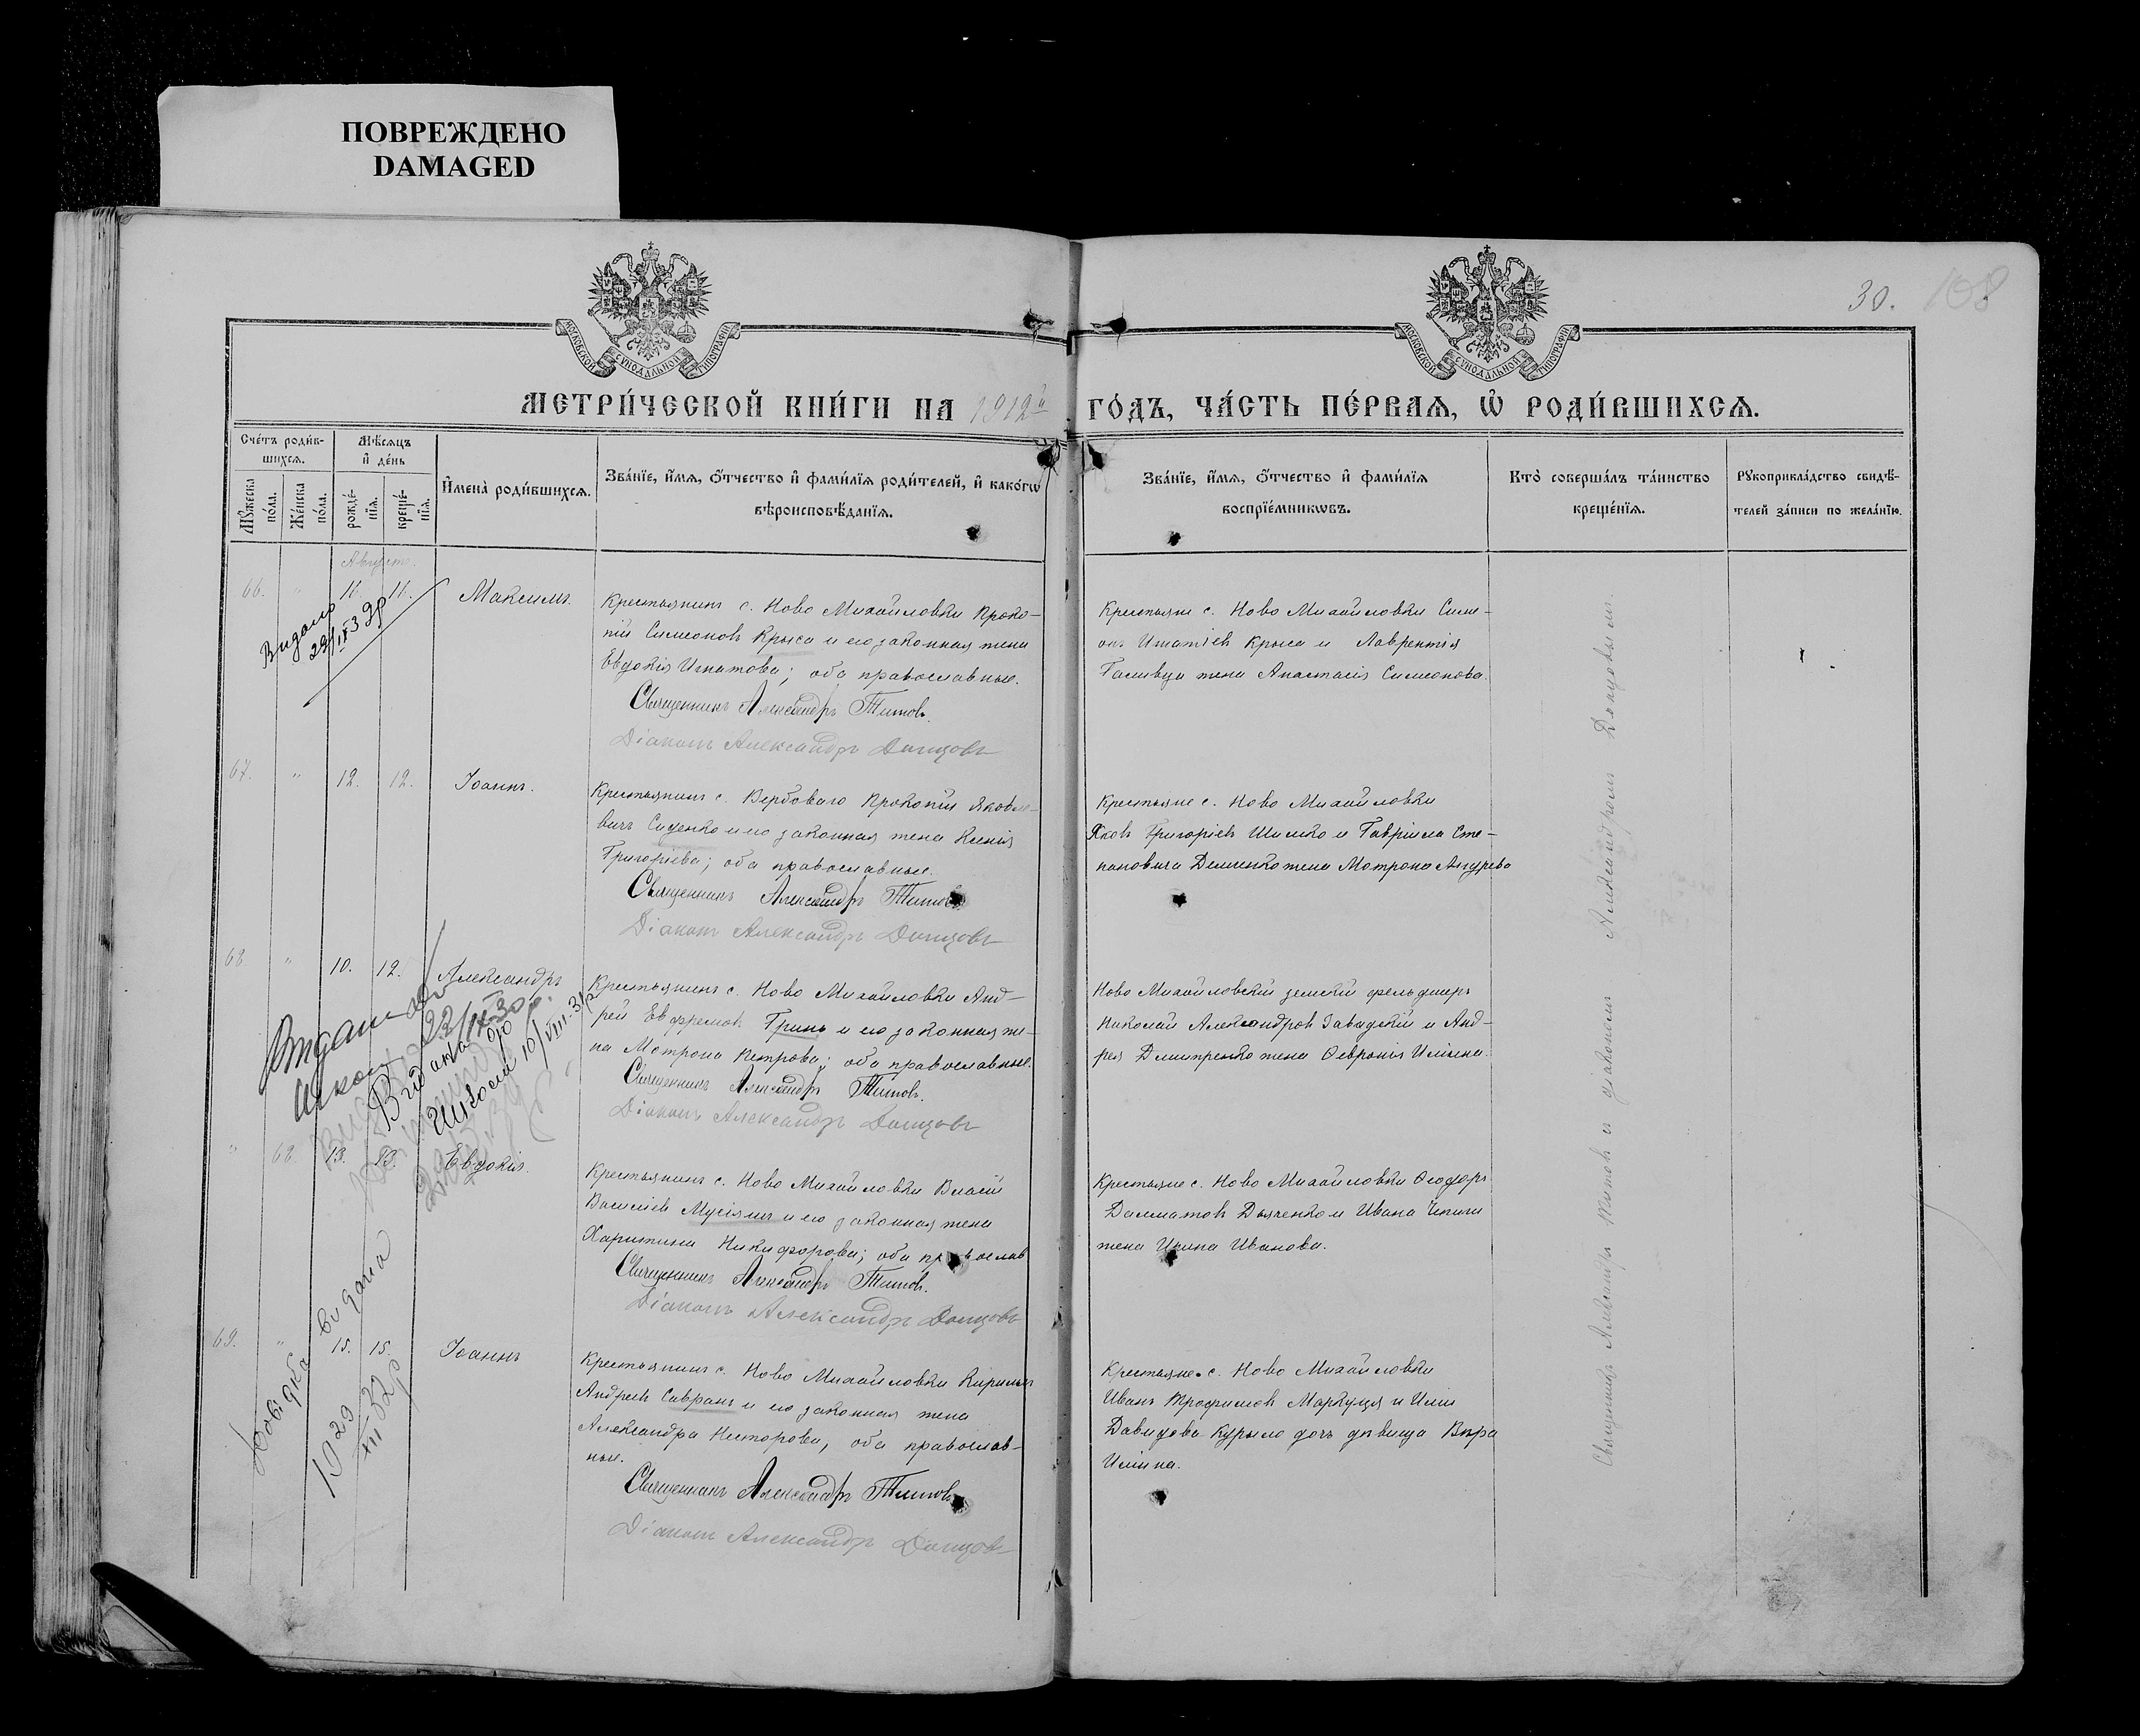 ПОВРЕЖДЕНО
DAMAGED
МОСКОВСКОЙ СѴНОДАЛЬНОЙ ТИПОГРАФІИ
МОСКОВСКОЙ СѴНОДАЛЬНОЙ ТИПОГРАФІИ
30. 108
МЕТРИ́ЧЕСКОЙ КНИ́ГИ НА 1912й ГО́ДЪ, ЧА́СТЬ ПЕ́РВАѦ, Ѡ҆ РОДИ́ВШИХСѦ.
Сче́тъ роди́в-
шихсѧ.
Мѣ́сѧцъ
и҆ де́нь
Мꙋ́жеска
по́ла.
Же́нска
по́ла.
рожде́-
нїѧ.
креще́-
нїѧ.
И҆мена̀ роди́вшихсѧ.
Зва́нїе, и҆́мѧ, ѻ҆́тчество и҆ фами́лїѧ роди́телей, и҆ како́гѡ
вѣроисповѣ́данїѧ.
Зва́нїе, и҆́мѧ, ѻ҆́тчество и҆ фами́лїѧ
воспрїе́мникѡвъ.
Кто̀ соверша́лъ та́инство
креще́нїѧ.
Рꙋкоприкла́дство свидѣ́-
телей за́писи по жела́нїю.
Августъ
66. " 11. 11. Максимъ.
Крестьянинъ с. Ново Михайловки Проко-
пій Симеоновъ Крыса и его законная жена
Евдокія Игнатова; оба православные.
Священникъ Александръ Титовъ.
Діаконъ Александръ Донцовъ
Крестьяне с. Ново Михайловки Симе-
онъ Игнатіевъ Крыса и Лаврентія
жена Анастасія Симеонова.
Видано
67. " 12. 12. Іоаннъ.
Крестьянинъ с. Вербоваго Прокопій Яковле-
вичъ Сиденко и его законная жена Ксенія
Григоріева; оба православные.
Священникъ Александръ Титовъ
Діаконъ Александръ Донцовъ
Крестьяне с. Ново Михайловки
Яковъ Григоріевъ Шимко и Гавріила Сте-
пановича Демченко жена Мотрона Андреева
68 " 10. 12. Александръ
Крестьянинъ с. Ново Михайловки Анд-
рей Евфремовъ Гринь и его законная же-
на Мотрона Петрова; оба православные.
Священникъ Александръ Титовъ.
Діаконъ Александръ Донцовъ
Ново Михайловскій земскій фельдшеръ
Николай Александровъ Завадскій и Анд-
рея Дмитренко жена Февронія Ильина.
Видано
23/IX 30 р.
Видана
10/VIII-31
" 68. 13. 13. Евдокія.
Крестьянинъ с. Ново Михайловки Власій
Василіевъ Мусіяцъ и его законная жена
Харитина Никифорова; оба православ
Священникъ Александръ Титовъ.
Діаконъ Александръ Донцовъ
Крестьяне с. Ново Михайловки Ѳеодоръ
Далматовъ Дьяченко и Ивана Чепиги
жена Ирина Иванова.
69. " 15. 15. Іоаннъ
Крестьянинъ с. Ново Михайловки Кириллъ
Андреевъ Савранъ и его законная жена
Александра Несторова, оба православ-
ные.
Священникъ Александръ Титовъ
Діаконъ Александръ Донцовъ
Крестьяне с. Ново Михайловки
Иванъ Трофимовъ Маркуця и Иліи
Давидова Курыло дочь дѣвица Вѣра
Ильина.
Довідка видана
1929
XII 32 р
Священникъ Александръ Титовъ и діакономъ Александромъ Донцовымъ.